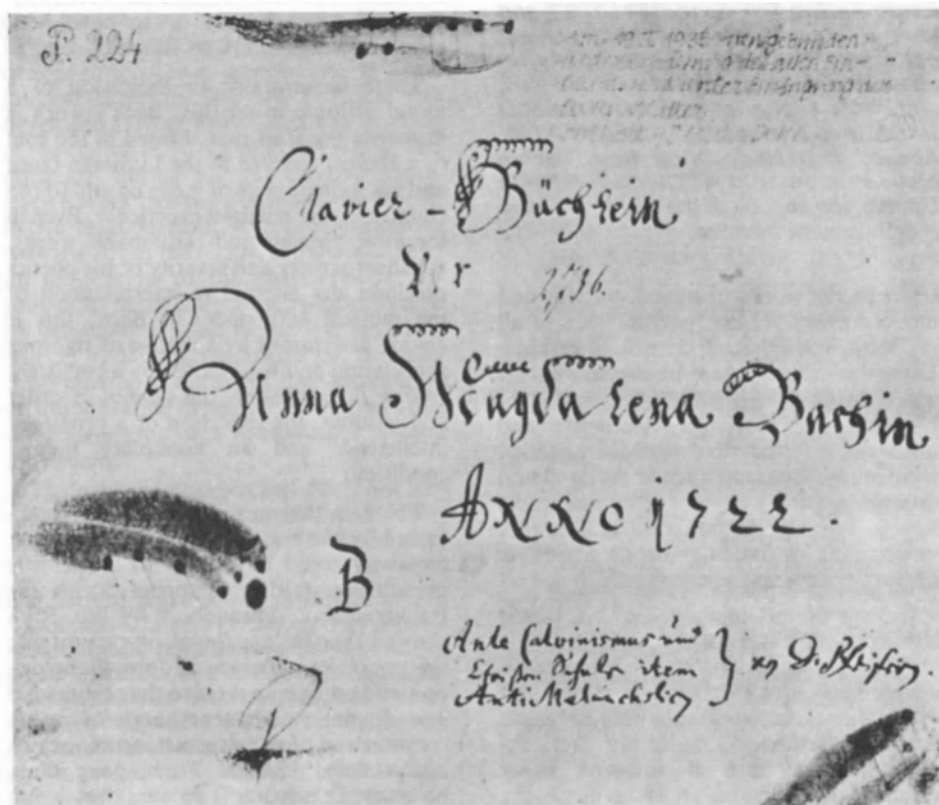 P. 224
Clavier-Büchlein
vor
Anna Magdalena Bachin
ANNO 1722.
B
Ante Calvinismus und
Christen Schule item
Anti Melancholicus
von D. Pfeifern.